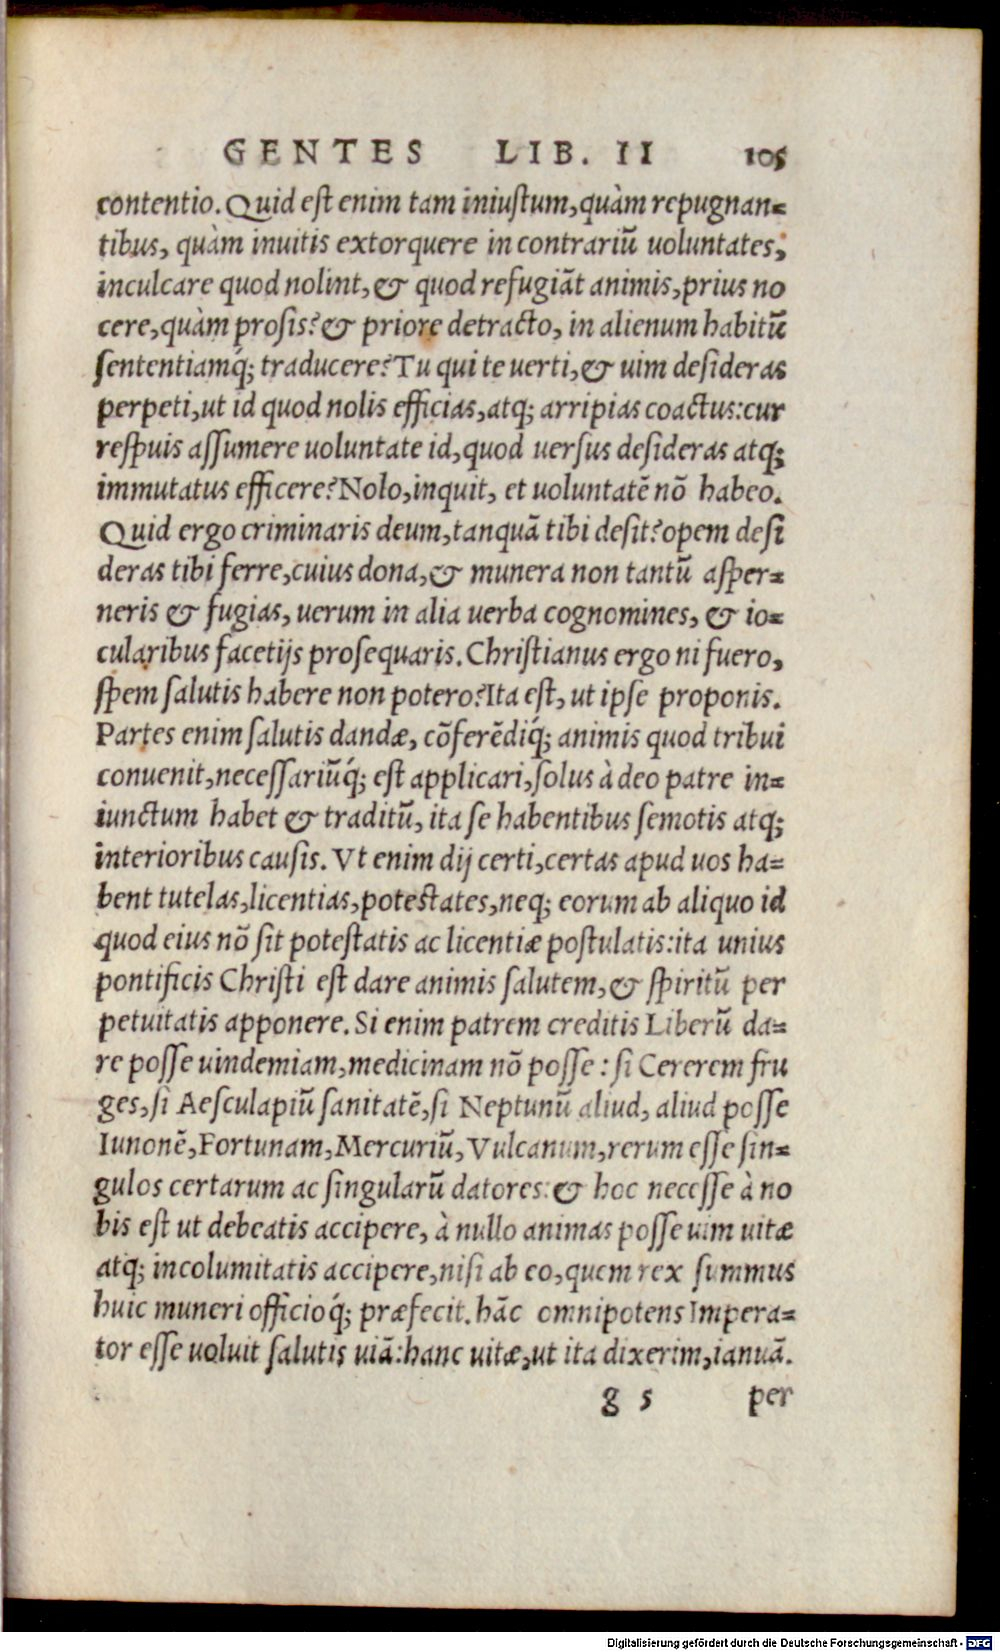 GENTES LIB. II 105
contentio. Quid est enim tam iniustum, quàm repugnan=
tibus, quàm inuitis extorquere in contrariũ uoluntates,
inculcare quod nolint, & quod refugiãt animis, prius no
cere, quàm prosis? & priore detracto, in alienum habitũ
sententiamq́; traducere? Tu qui te uerti, & uim desideras
perpeti, ut id quod nolis efficias, atq; arripias coactus: cur
respuis assumere uoluntate id, quod uersus desideras atq;
immutatus efficere? Nolo, inquit, et uoluntatẽ nõ habeo.
Quid ergo criminaris deum, tanquã tibi desit? opem desi
deras tibi ferre, cuius dona, & munera non tantũ asper=
neris & fugias, uerum in alia uerba cognomines, & io=
cularibus facetijs prosequaris. Christianus ergo ni fuero,
spem salutis habere non potero? Ita est, ut ipse proponis.
Partes enim salutis dandæ, cõferẽdiq́; animis quod tribui
conuenit, necessariũq́; est applicari, solus à deo patre in=
iunctum habet & traditũ, ita se habentibus semotis atq;
interioribus causis. Vt enim dij certi, certas apud uos ha=
bent tutelas, licentias, potestates, neq; eorum ab aliquo id
quod eius nõ sit potestatis ac licentiæ postulatis: ita unius
pontificis Christi est dare animis salutem, & spiritũ per
petuitatis apponere. Si enim patrem creditis Liberũ da=
re posse uindemiam, medicinam nõ posse: si Cererem fru
ges, si Aesculapiũ sanitatẽ, si Neptunũ aliud, aliud posse
Iunonẽ, Fortunam, Mercuriũ, Vulcanum, rerum esse sin=
gulos certarum ac singularũ datores: & hoc necesse à no
bis est ut debeatis accipere, à nullo animas posse uim uitæ
atq; incolumitatis accipere, nisi ab eo, quem rex summus
huic muneri officioq́; præfecit. hãc omnipotens Impera=
tor esse uoluit salutis uiã: hanc uitæ, ut ita dixerim, ianuã.
g 5 per
Digitalisierung gefördert durch die Deutsche Forschungsgemeinschaft - DFG